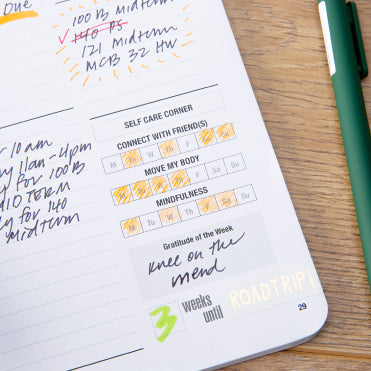 Due
100 B Midterm
140 PS
121 Midterm
MCB 32 HW
10 am
11am-4pm
for 100B
MIDTERM
for 140
Midterm
SELF CARE CORNER
CONNECT WITH FRIEND(S)
M Tu W Th F Sa Su
MOVE MY BODY
M Tu W Th F Sa Su
MINDFULNESS
M Tu W Th F Sa Su
Gratitude of the Week
Knee on the
mend
3 weeks
until ROADTRIP!
29